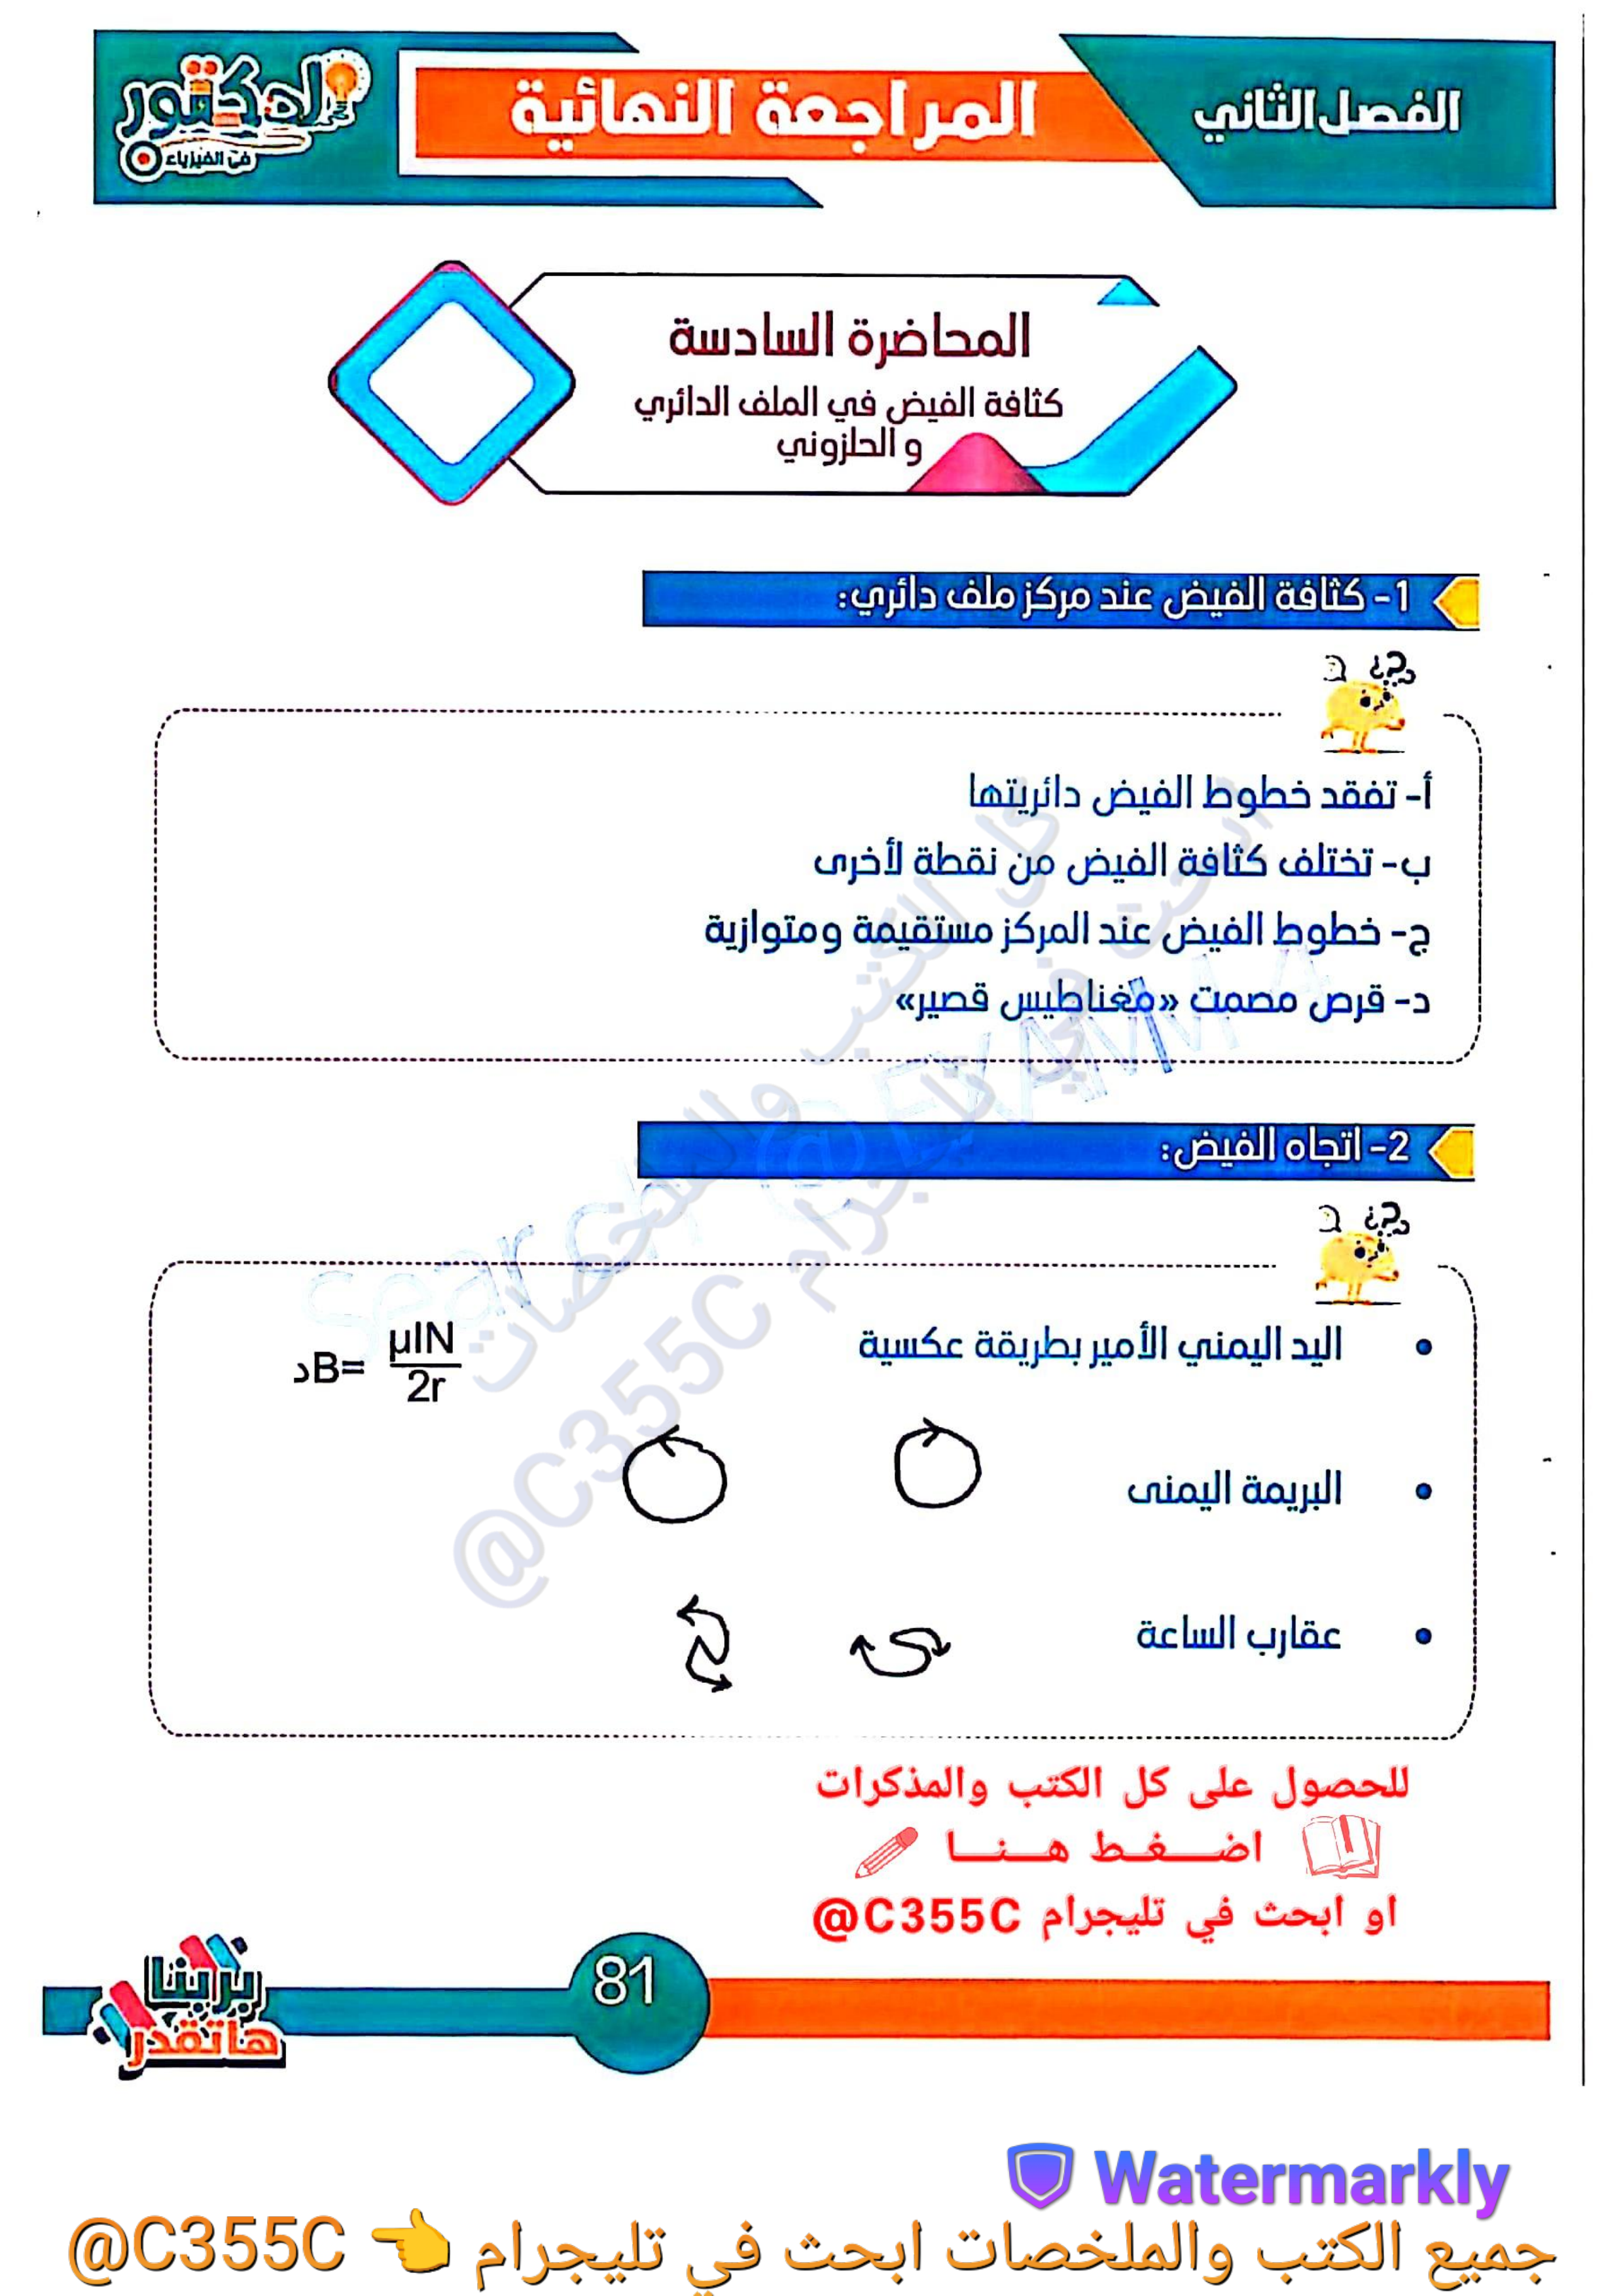 الفصل الثاني
المراجعة النهائية
الدكتور
في الفيزياء
المحاضرة السادسة
كثافة الفيض في الملف الدائري
و الحلزوني
1- كثافة الفيض عند مركز ملف دائري:
أ- تفقد خطوط الفيض دائريتها
ب- تختلف كثافة الفيض من نقطة لأخرى
ج- خطوط الفيض عند المركز مستقيمة ومتوازية
د- قرص مصمت «مغناطيس قصير»
2- اتجاه الفيض:
اليد اليمني الأمير بطريقة عكسية
دB= μIN
2r
البريمة اليمنى
عقارب الساعة
كل الكتب والملخصات
ابحث في تليجرام @C355C
Search @EXAMM
للحصول على كل الكتب والمذكرات
اضـــغــط هــنــا
او ابحث في تليجرام C355C@
81
بزاينا
هاتقدر
Watermarkly
جميع الكتب والملخصات ابحث في تليجرام 👈 C355C@